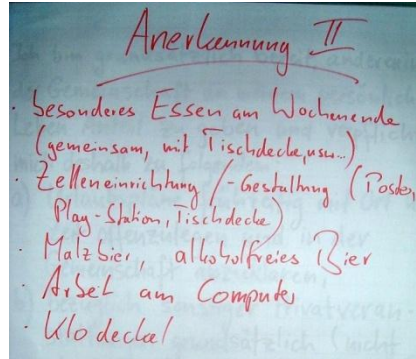 Anerkennung II
· besonderes Essen am Wochenende
(gemeinsam, mit Tischdecke, usw...)
· Zelleneinrichtung /-Gestaltung (Poster,
Play-Station, Tischdecke)
· Malzbier, alkoholfreies Bier
· Arbeit am Computer
· Klodeckel